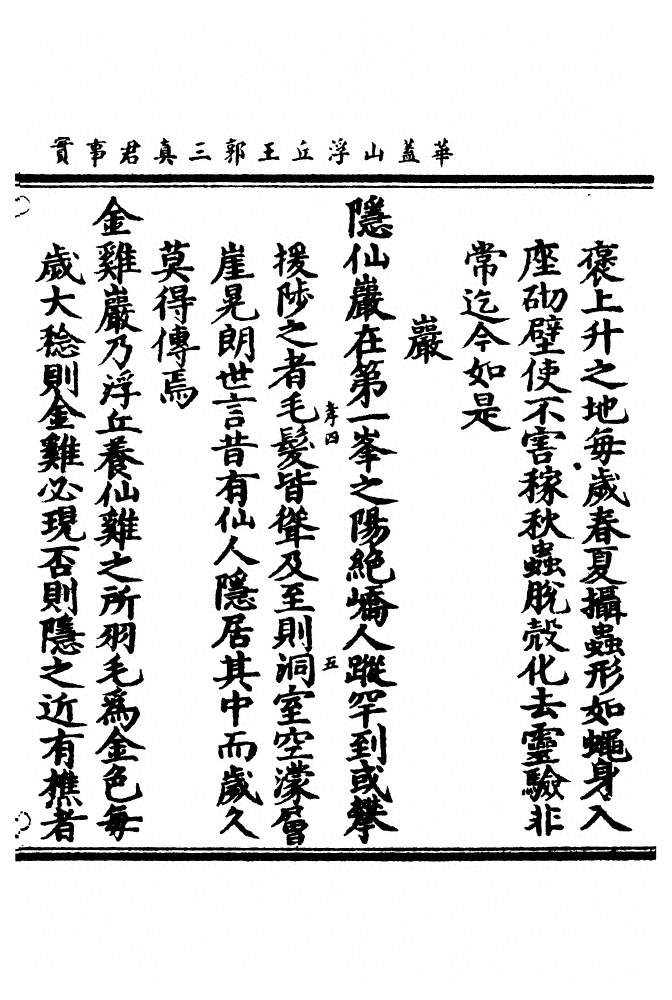 華蓋山浮丘王郭三真君事實
褒上升之地每歲春夏攝蟲形如蠅身入
座砌壁使不害稼秋蟲脫殼化去靈驗非
常迄今如是
巖
隱仙巖在第一峯之陽絕嶠人蹤罕到或攀
援陟之者毛髮皆聳及至則洞室空濛層
崖晃朗世言昔有仙人隱居其中而歲久
莫得傳焉
金雞巖乃浮丘養仙雞之所羽毛爲金色每
歲大稔則金雞必現否則隱之近有樵者
四
五